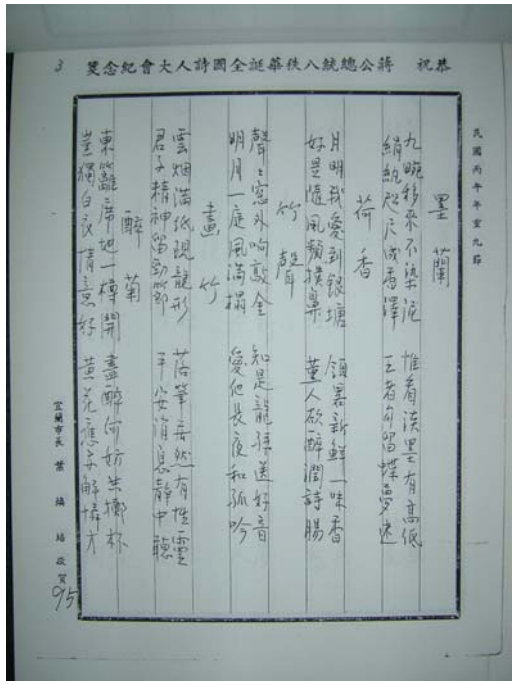 恭祝 蔣公總統八秩華誕全國詩人大會紀念箋
3
民國丙午年重九節
墨蘭
九畹移來不染泥 惟看淡墨有高低
綃紈咫尺成香澤 王者勿留蝶夢迷
荷香
月明我愛到銀塘 領畧新鮮一味香
好是隨風頻撲鼻 薰人欲醉潤詩腸
竹聲
聲聲窓外响敲金 知是龍孫送好音
明月一庭風滿榻 愛他長夜和孤吟
畫竹
雲烟滿紙現龍形 落筆居然有性靈
君子精神留勁節 平安消息靜中聽
醉菊
東籬席地一樽開 盡醉何妨共擲杯
豈獨白衣情意好 黃花應亦解憐才
宜蘭市長 葉 培敬賀
95